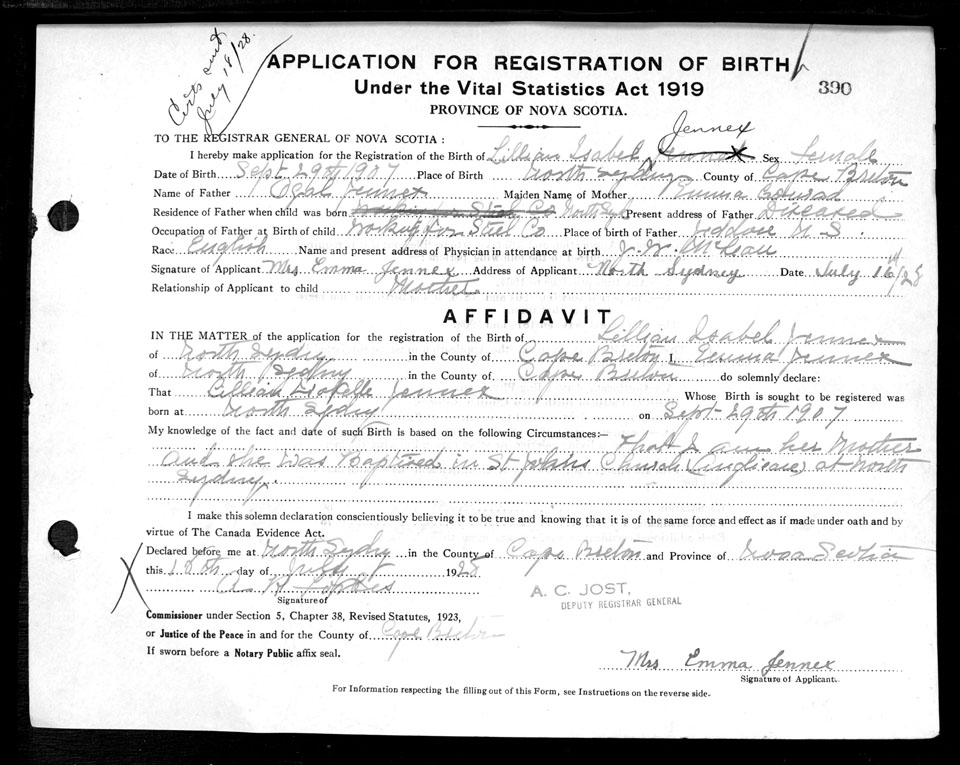 Certs sent
July 18/28.
APPLICATION FOR REGISTRATION OF BIRTH
Under the Vital Statistics Act 1919
390
PROVINCE OF NOVA SCOTIA.
TO THE REGISTRAR GENERAL OF NOVA SCOTIA :
Jennex
I hereby make application for the Registration of the Birth of Lillian Isabel Sex Female
Date of Birth Sept 29th 1907 Place of Birth North Sydney County of Cape Breton
Name of Father Jennex Maiden Name of Mother Emma
Residence of Father when child was born working for Steel Co North Syd Present address of Father Diseased
Occupation of Father at Birth of child Working for Steel Co. Place of birth of Father Jeddore N.S.
Race English Name and present address of Physician in attendance at birth J. W. McLean
Signature of Applicant Mrs Emma Jennex Address of Applicant North Sydney Date July 16/28
Relationship of Applicant to child Mother
AFFIDAVIT
IN THE MATTER of the application for the registration of the Birth of Lillian Isabel Jennex
of North Sydny in the County of Cape Breton I, Emma Jennex
of North Sydny in the County of Cape Breton do solemnly declare:
That Lillian Isabelle Jennex Whose Birth is sought to be registered was
born at North Sydny on Sept 29th 1907
My knowledge of the fact and date of such Birth is based on the following Circumstances:— That I am her Mother
and she was Baptised in St Johns Church at North
Sydny.
I make this solemn declaration conscientiously believing it to be true and knowing that it is of the same force and effect as if made under oath and by
virtue of The Canada Evidence Act.
Declared before me at North Sydny in the County of Cape Breton and Province of Nova Scotia
this day of July 1928
A. C. JOST,
DEPUTY REGISTRAR GENERAL
Signature of
Commissioner under Section 5, Chapter 38, Revised Statutes, 1923,
or Justice of the Peace in and for the County of Cape Breton
If sworn before a Notary Public affix seal.
Mrs Emma Jennex
Signature of Applicant.
For Information respecting the filling out of this Form, see Instructions on the reverse side.